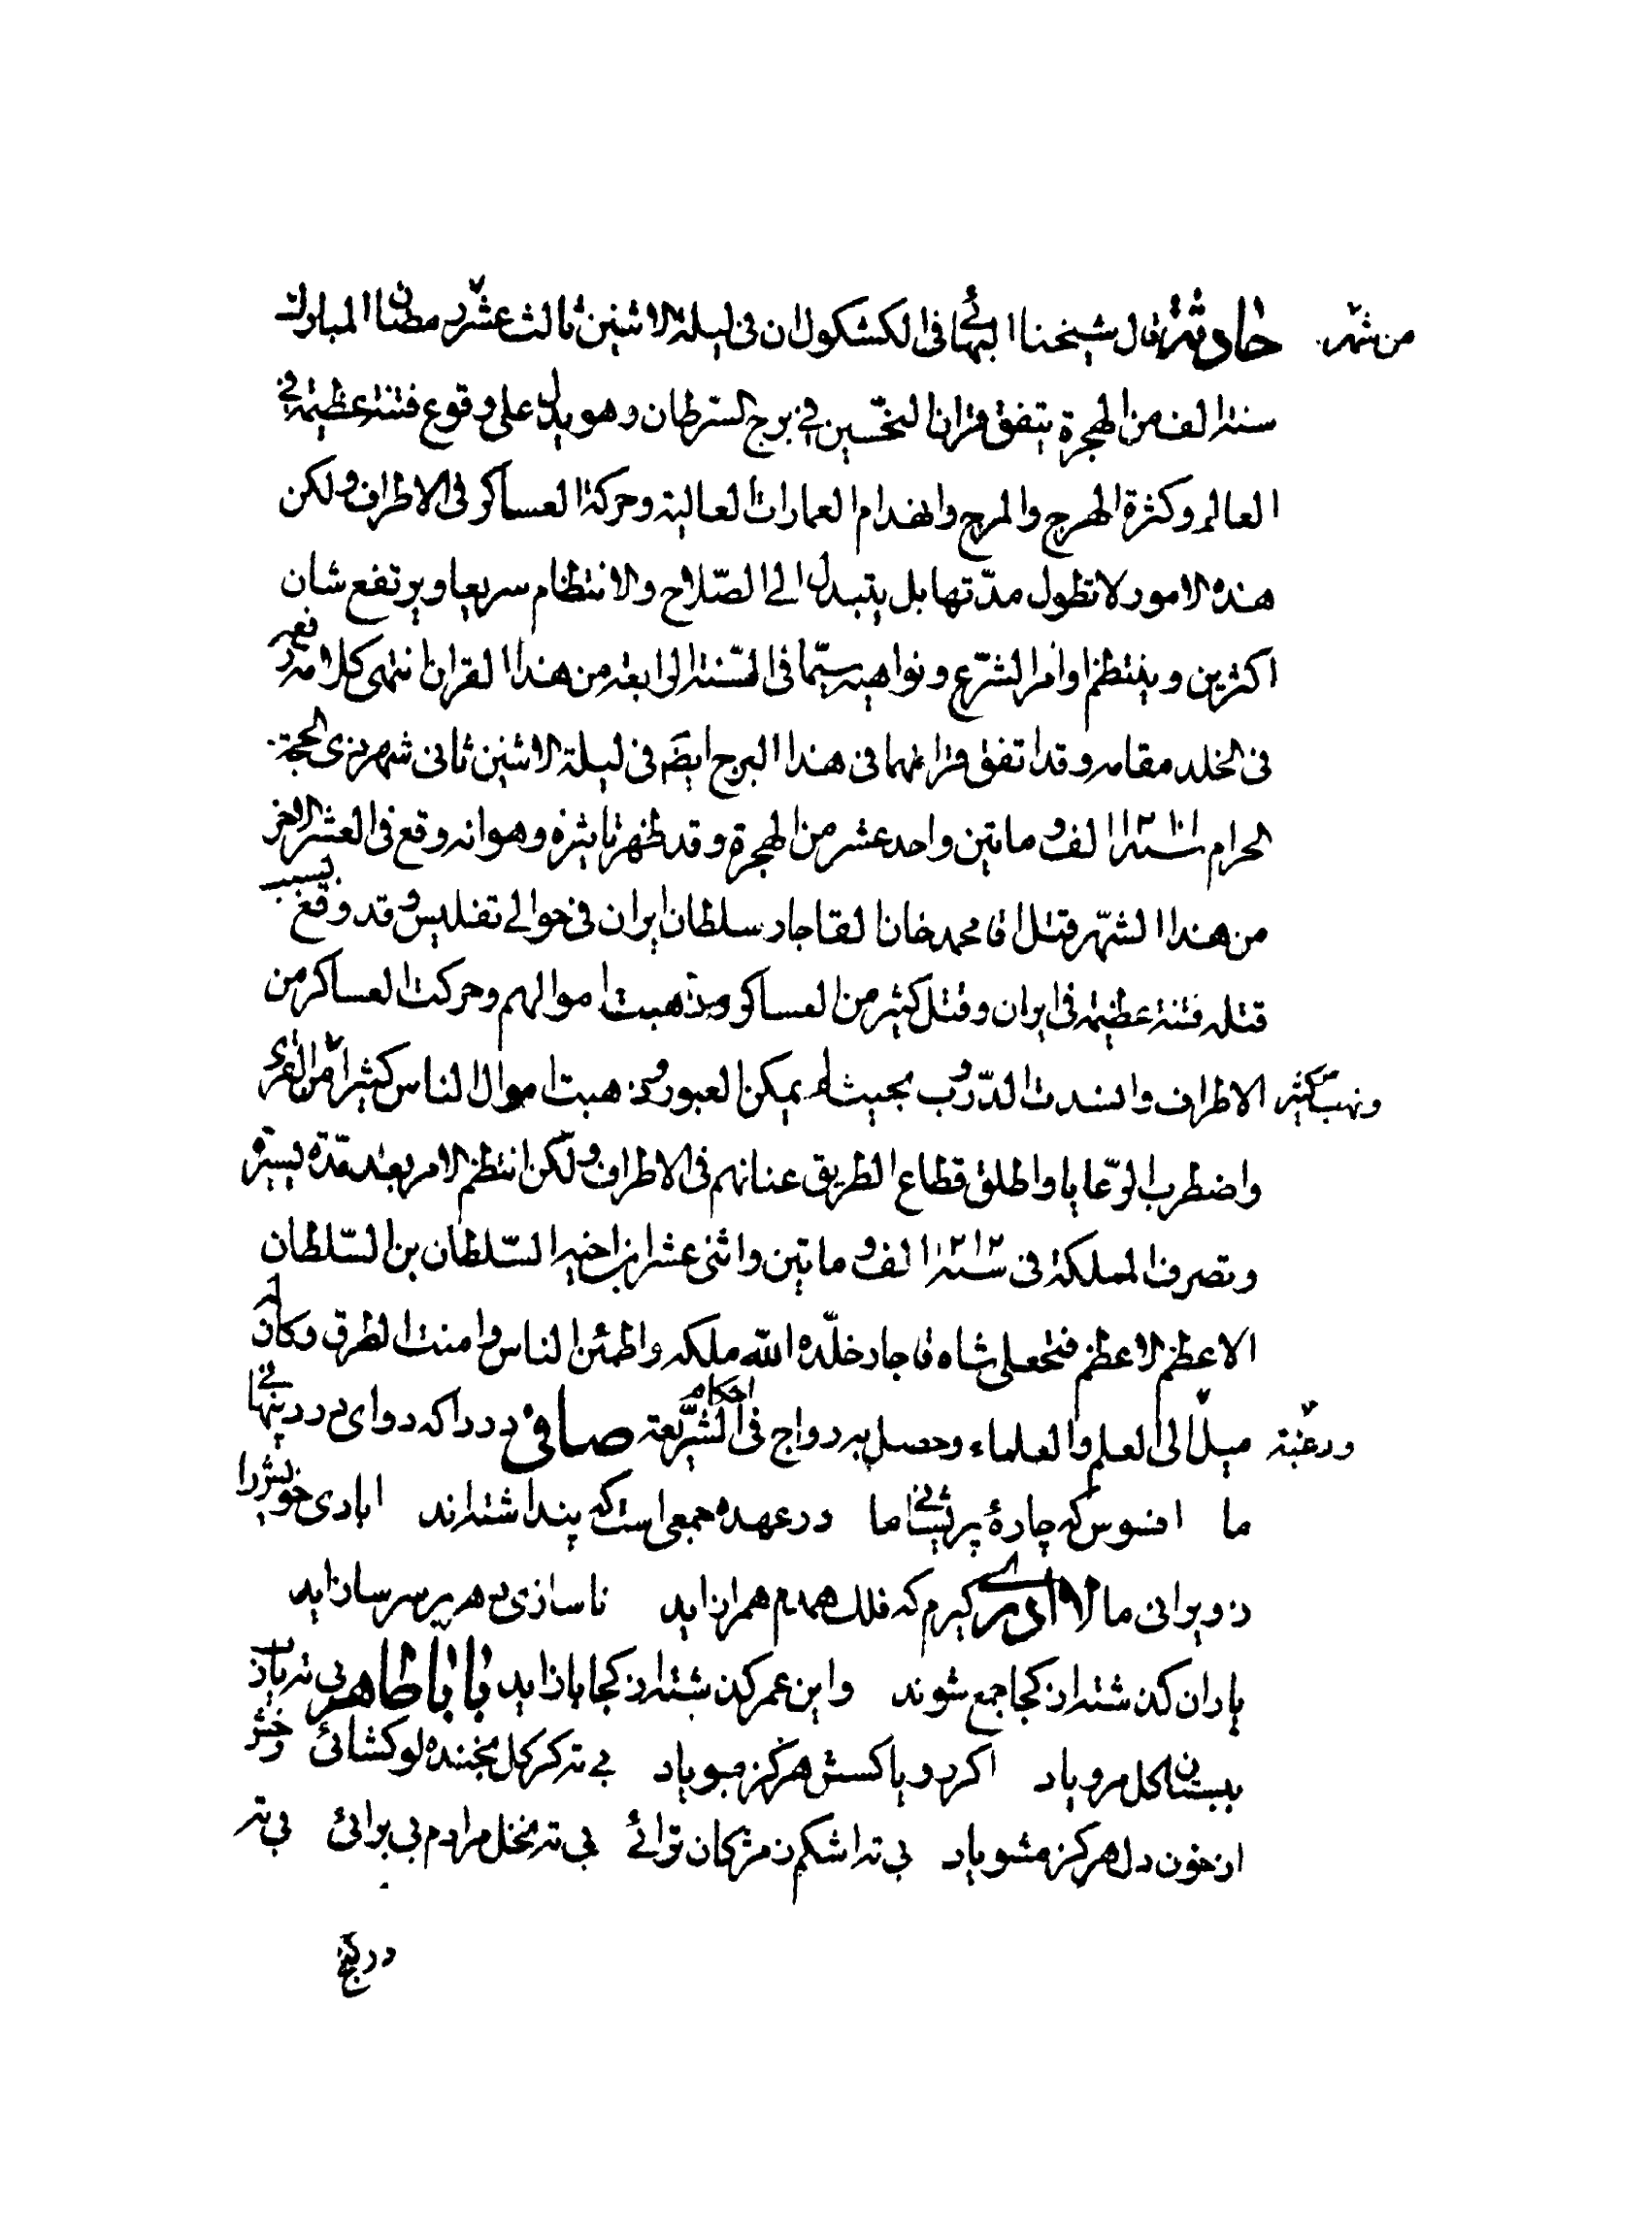 من شهر
حادثة قال شيخنا البهائي في الكشكول ان في ليلة الاثنين ثالث عشر رمضان المبارك
سنة الف من الهجرة يتفق قران النحسين في برج السرطان وهو يدل على وقوع فتنة عظيمة في
العالم وكثرة الهرج والمرج وانهدام العمارات العالية وحركة العساكر في الاطراف ولكن
هذه الامور لا تطول مدّتها بل يتبدل الى الصّلاح والانتظام سريعا ويرتفع شان
اكثرين وينتظم اوامر الشرع ونواهيه سيّما في السّنة الرابعة من هذا القران انتهى كلامه رفع
في الخلد مقامه وقد اتفق قرانهما في هذا البرج ايضا في ليلة الاثنين ثاني شهر ذي الحجة
الحرام سنة ١٢١١ الف و ماتين واحد عشر من الهجرة وقد ظهر تاثيره وهو انه وقع في العشر الاخر
من هذا الشهر قتل اقا محمد خان القاجار سلطان ايران في حوالي تفليس و قد وقع بسبب
قتله فتنة عظيمة في ايران وقتل كثير من العساكر وذهبت اموالهم وحركت العساكر من
ونهب كثير
الاطراف وانسدت الدّروب بحيث لم يمكن العبور و ذهبت اموال الناس كثيرا من القرى
واضطرب الرّعايا واطلق قطاع الطريق عنانهم في الاطراف و لكن انتظم الامر بعد مدّة يسيرة و
وتصرف المملكة في سنة ١٢١٢ الف و ماتين واثنى عشر ابن اخيه السّلطان بن السّلطان
الاعظم الاعظم فتحعلى شاه قاجار خلّده الله ملكه واطمئن الناس وامنت الطرق وكان له
ورغبة
ميل الى العلم والعلماء وحصل به رواج في احكام الشريعة صافى دردا كه دواى درد پنهانى
ما افسوس كه چارهٔ پريشانى ما در عهده جمعى است كه پنداشته‌اند ابادى خويش را
ز ويرانى ما لا ادرى كيرم كه فلك همدم همراز ايد ناسازى دهر بر سر ساز ايد
ياران كذشته از كجا جمع شوند واين عمر كذشته از كجا باز ايد بابا طاهر بى ته يارب
ببستان كل مروياد اكر رويا كسش هركز مبوياد بى ته كر كل بخنده لو كشائى رخش
از خون دل هركز مشوياد بى ته اشكم ز مژكان تر ائى بى ته نخل مرادم بى برائى بى ته
در كنج